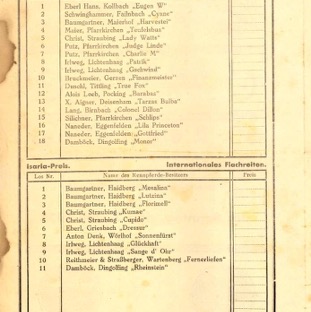 1 Eberl Hans, Kollbach „Eugen W“
2 Schwinghammer, Falnbach „Cyrus“
3 Baumgartner, Maierhof „Harvester“
4 Maier, Pfarrkirchen „Teufelsbua“
5 Christ, Straubing „Lady Watts“
6 Putz, Pfarrkirchen „Judge Linde“
7 Putz, Pfarrkirchen „Charlie M“
8 Irlweg, Lichtenhaag „Patrik“
9 Irlweg, Lichtenhaag „Gschwind“
10 Bruckmeier, Gerzen „Finanzminister“
11 Tittling „True Fox“
12 Alois Loch, Pocking „Barabas“
13 X. Aigner, Deisenham „Taraas Bulba“
14 Lang, Birnbach „Colonel Dillon“
15 Pfarrkirchen „Schlips“
16 Naneder, Eggenfelden „Lila Princeton“
17 Naneder, Eggenfelden „Gottfried“
18 Damböck, Dingolfing
Isaria-Preis. Internationales Flachreiten.
Los Nr. Name des Rennpferde-Besitzers Preis
1 Baumgartner, Haidberg „Mesalina“
2 Baumgartner, Haidberg
3 Baumgartner, Haidberg „Florizell“
4 Christ, Straubing „Kumae“
5 Christ, Straubing „Cupido“
6 Eberl, Griesbach „Dresser“
7 Anton Denk, Wörlhof „Sonnenfürst“
8 Irlweg, Lichtenhaag „Glückhaft“
9 Irlweg, Lichtenhaag „Sange d' Or“
10 Reithmeier & Straßberger, Wartenberg „Fernerliefen“
11 Damböck, Dingolfing „Rheinstein“